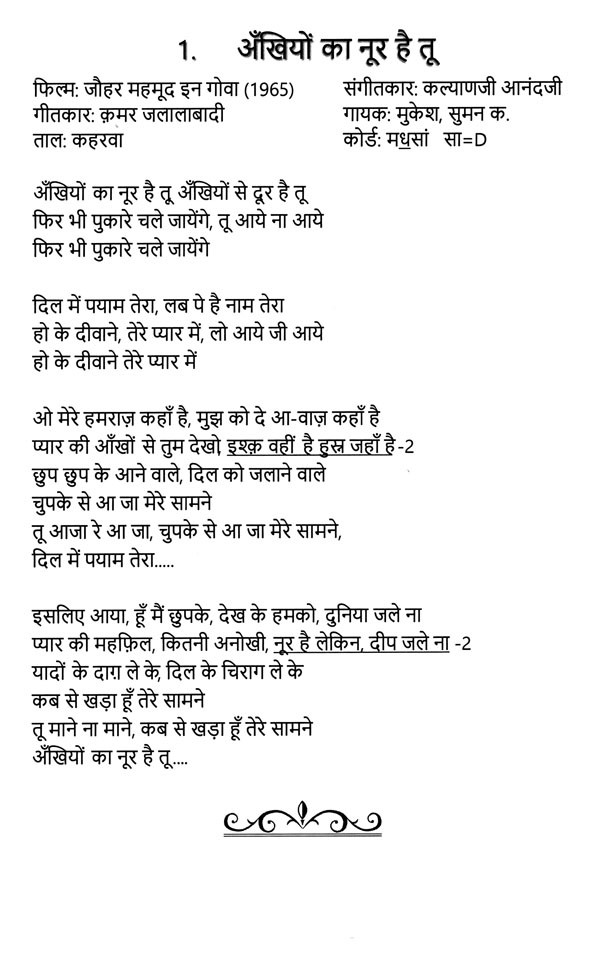 1. अँखियों का नूर है तू
फिल्म: जौहर महमूद इन गोवा (1965) संगीतकार: कल्याणजी आनंदजी
गीतकार: क़मर जलालाबादी गायक: मुकेश, सुमन क.
ताल: कहरवा कोर्ड: मध॒सां सा=D
अँखियों का नूर है तू, अँखियों से दूर है तू
फिर भी पुकारे चले जायेंगे, तू आये ना आये
फिर भी पुकारे चले जायेंगे
दिल में पयाम तेरा, लब पे है नाम तेरा
हो के दीवाने, तेरे प्यार में, लो आये जी आये
हो के दीवाने तेरे प्यार में
ओ मेरे हमराज़ कहाँ है, मुझ को दे आ-वाज़ कहाँ है
प्यार की आँखों से तुम देखो, इश्क़ वहीं है हुस्न जहाँ है -2
छुप छुप के आने वाले, दिल को जलाने वाले
चुपके से आ जा मेरे सामने
तू आजा रे आ जा, चुपके से आ जा मेरे सामने,
दिल में पयाम तेरा.....
इसलिए आया, हूँ मैं छुपके, देख के हमको, दुनिया जले ना
प्यार की महफ़िल, कितनी अनोखी, नूर है लेकिन, दीप जले ना -2
यादों के दाग़ ले के, दिल के चिराग ले के
कब से खड़ा हूँ तेरे सामने
तू माने ना माने, कब से खड़ा हूँ तेरे सामने
अँखियों का नूर है तू....